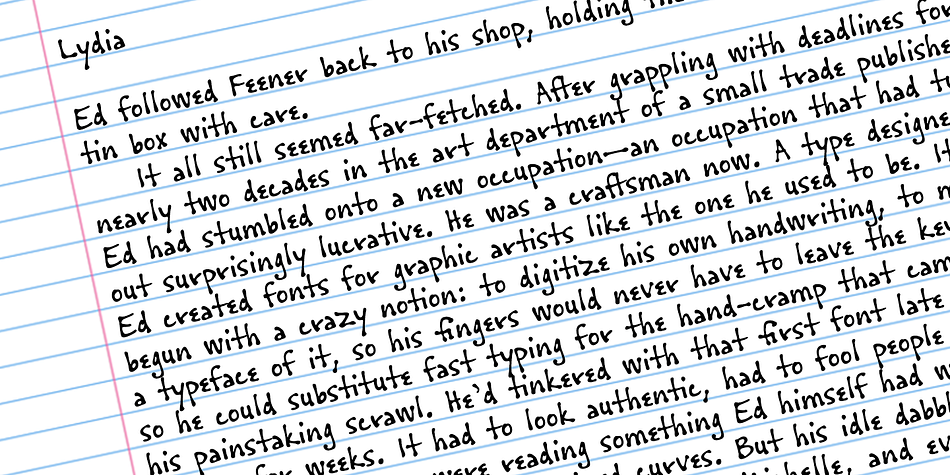 Lydia
Ed followed Feener back to his shop, holding
tin box with care.
It all still seemed far-fetched. After grappling with deadlines for
nearly two decades in the art department of a small trade
Ed had stumbled onto a new occupation—an occupation that had
out surprisingly lucrative. He was a craftsman now. A type
Ed created fonts for graphic artists like the one he used to be.
begun with a crazy notion: to digitize his own handwriting, to
a typeface of it, so his fingers would never have to leave the
so he could substitute fast typing for the hand-cramp that
his painstaking scrawl. He'd tinkered with that first font late
weeks. It had to look authentic, had to fool people
reading something Ed himself had
curves. But his idle
and